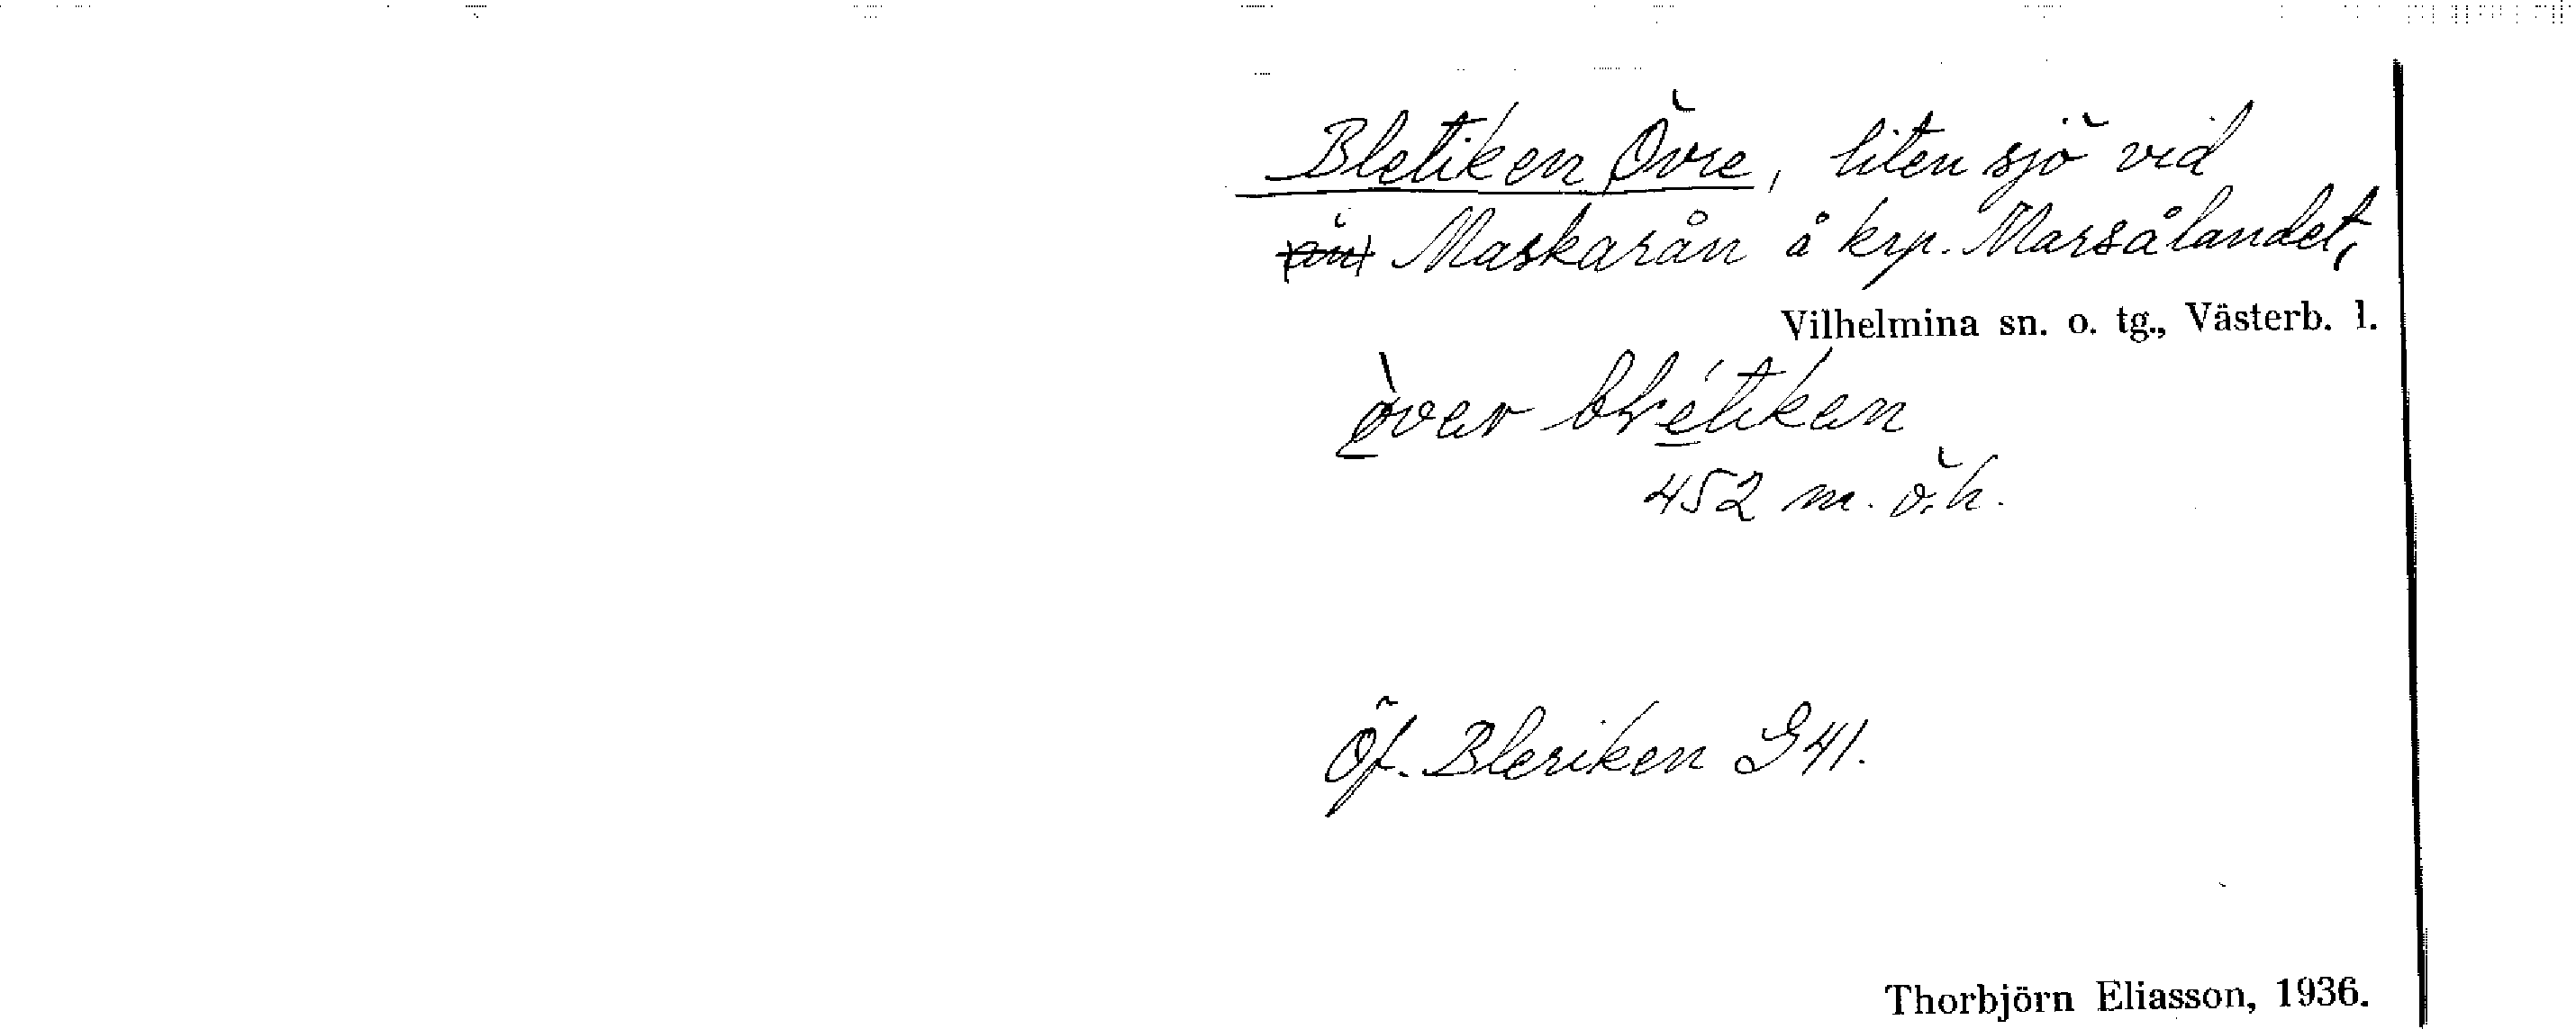 Bletiken Övre, liten sjö vid
Maskarån å krp. Marsålandet,
Vilhelmina sn. o. tg., Västerb. l.
452 m. ö. h.
Öf. Bleriken G41.
Thorbjörn Eliasson, 1936.